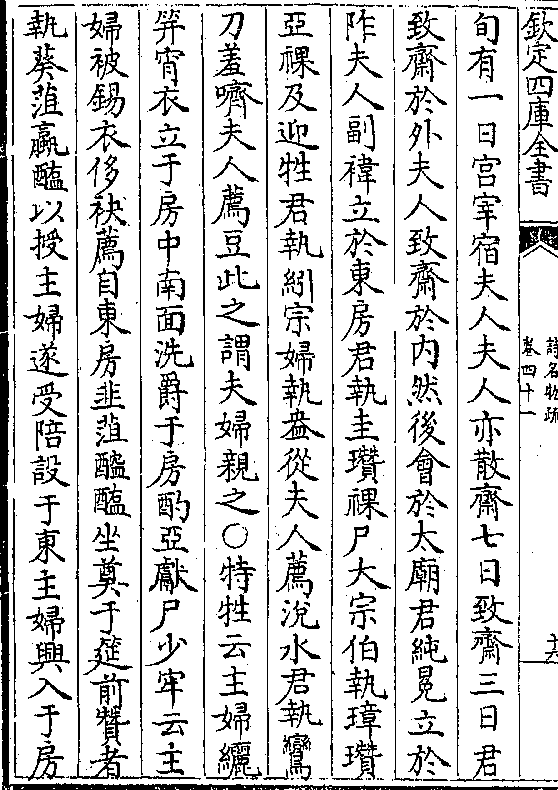 欽定四庫全書
詩名物疏
卷四十一
十六
旬有一日宫宰宿夫人夫人亦散齋七日致齋三日君
致齋於外夫人致齋於内然後會於太廟君純冕立於
阼夫人副褘立於東房君執圭瓉祼尸大宗伯執璋瓉
亞祼及迎牲君執紖宗婦執盎從夫人薦涚水君執鸞
刀羞嚌夫人薦豆此之謂夫婦親之○特牲云主婦纚
笄宵衣立于房中南面洗爵于房酌亞獻尸少牢云主
婦被錫衣侈袂薦自東房韭菹醓醢坐奠于筵前贊者
執葵菹蠃醢以授主婦遂受陪設于東主婦興入于房